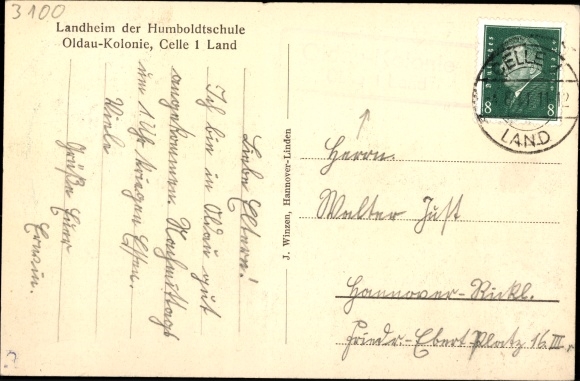 3100
Landheim der Humboldtschule
Oldau-Kolonie, Celle 1 Land
Liebe Eltern!
Ich bin in Oldau gut
angekommen. Nachmittags
um 1 Uhr kriegen Essen.
Viele
Grüße Euer
Erwin.
J. Winzen, Hannover-Linden
Deutsches Reich
8 8
CELLE
LAND
Herrn
Walter Just
Hannover-Rickl.
Friedr.-Ebert-Platz 16 III